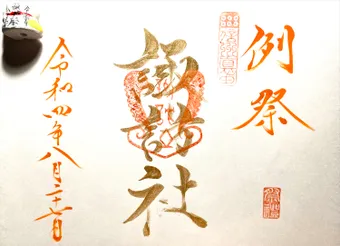 例祭
諏訪社
令和四年八月二十一日